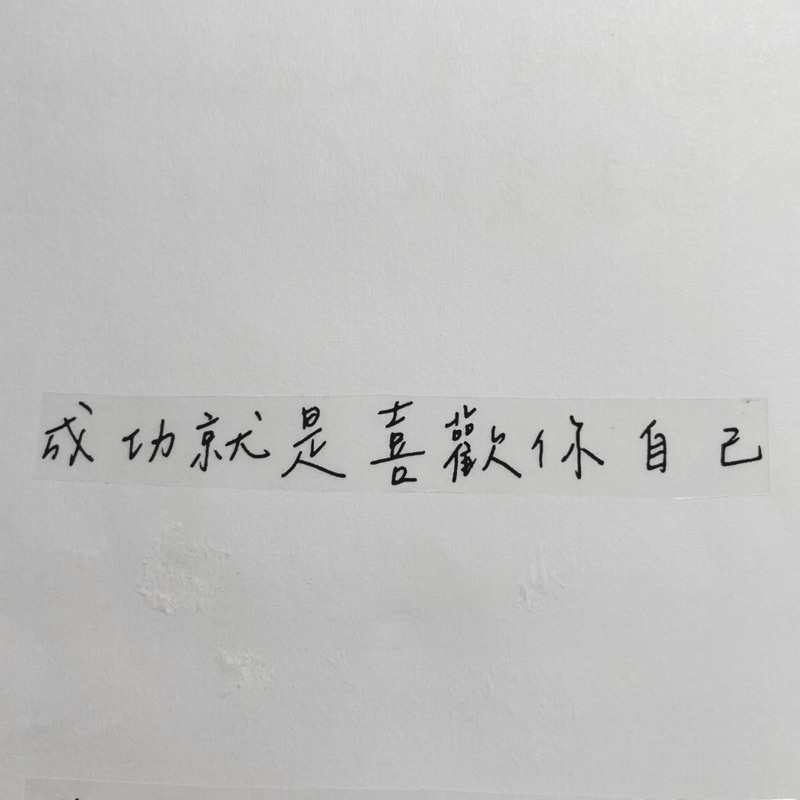 成功就是喜歡你自己